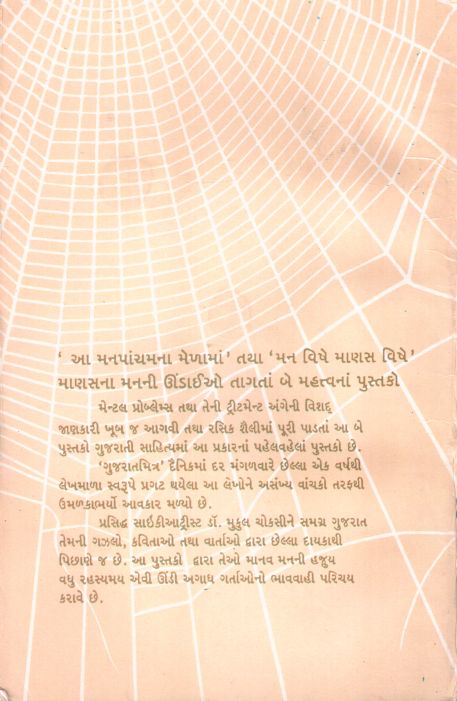 ‘ આ મનપાંચમના મેળામાં’ તથા ‘મન વિષે માણસ વિષે’
માણસના મનની ઊંડાઈઓ તાગતાં બે મહત્વનાં પુસ્તકો
મેન્ટલ પ્રોબ્લેમ્સ તથા તેની ટ્રીટમેન્ટ અંગેની વિશદ્
જાણકારી ખૂબ જ આગવી તથા રસિક શૈલીમાં પૂરી પાડતાં આ બે
પુસ્તકો ગુજરાતી સાહિત્યમાં આ પ્રકારનાં પહેલવહેલાં પુસ્તકો છે.
‘ગુજરાતમિત્ર’ દૈનિકમાં દર મંગળવારે છેલ્લા એક વર્ષથી
લેખમાળા સ્વરૂપે પ્રગટ થયેલા આ લેખોને અસંખ્ય વાંચકો તરફથી
ઉમળકાભર્યો આવકાર મળ્યો છે.
પ્રસિદ્ધ સાઇકીઆટ્રીસ્ટ ડૉ. મુકુલ ચોકસીને સમગ્ર ગુજરાત
તેમની ગઝલો, કવિતાઓ તથા વાર્તાઓ દ્વારા છેલ્લા દાયકાથી
પિછાણે જ છે. આ પુસ્તકો દ્વારા તેઓ માનવ મનની હજુય
વધુ રહસ્યમય એવી ઊંડી અગાધ ગર્તાઓનો ભાવવાહી પરિચય
કરાવે છે.